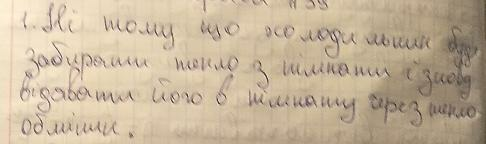 №38
1. Ні тому що холодильник буде
забирати тепло з кімнати і знову
відавати його в кімнату через тепло
обмінн.